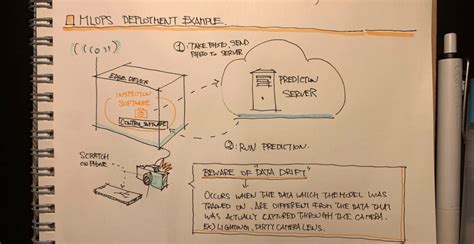 MLOPS DEPLOYMENT EXAMPLE.
① TAKE PHOTO, SEND
PHOTO TO SERVER
EDGE DEVICE
INSPECTION
SOFTWARE
CONTROL SOFTWARE
PREDICTION
SERVER
② RUN PREDICTION.
SCRATCH
ON PHONE
BEWARE OF "DATA DRIFT"
OCCURS WHEN THE DATA WHICH THE MODEL WAS
TRAINED ON, ARE DIFFERENT FROM THE DATA THAT
WAS ACTUALLY CAPTURED THROUGH THE CAMERA.
EX) LIGHTING, DIRTY CAMERA LENS.